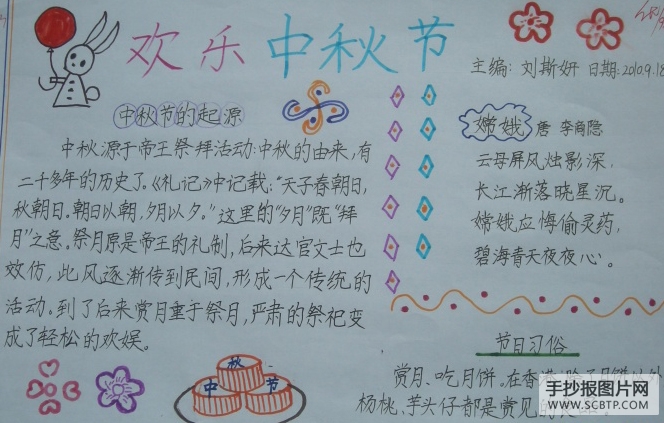 欢乐中秋节
主编: 刘斯妍 日期: 2010.9.18
中秋节的起源
中秋源于帝王祭拜活动:中秋的由来,有
二千多年的历史了。《礼记》中记载:"天子春朝日,
秋朝日。朝日以朝,夕月以夕。"这里的"夕月"既"拜
月"之意。祭月原是帝王的礼制,后来达官文士也
效仿,此风逐渐传到民间,形成一个传统的
活动。到了后来赏月重于祭月,严肃的祭祀变
成了轻松的欢娱。
秋
中 节
嫦娥 唐 李商隐
云母屏风烛影深,
长江渐落晓星沉。
嫦娥应悔偷灵药,
碧海青天夜夜心。
节日习俗
赏月、吃月饼。在香
杨桃、芋头仔都是赏见的
手抄报图片网
WWW.SCBTP.COM